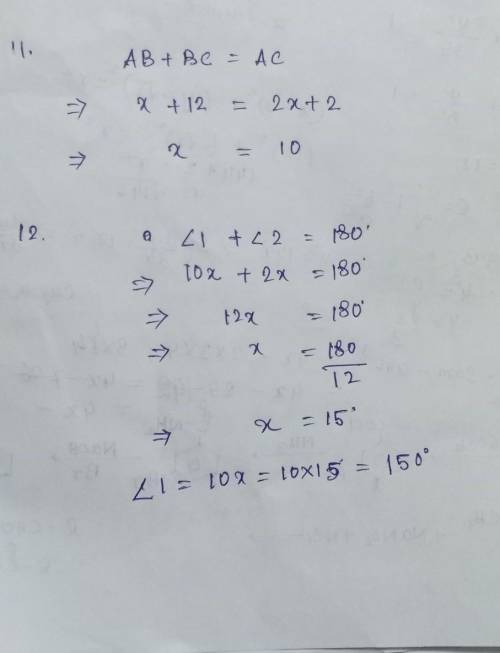 11. AB + BC = AC
⇒ x + 12 = 2x + 2
⇒ x = 10
12. ∠1 + ∠2 = 180°
⇒ 10x + 2x = 180°
⇒ 12x = 180°
⇒ x = 180/12
⇒ x = 15°
∠1 = 10x = 10×15 = 150°